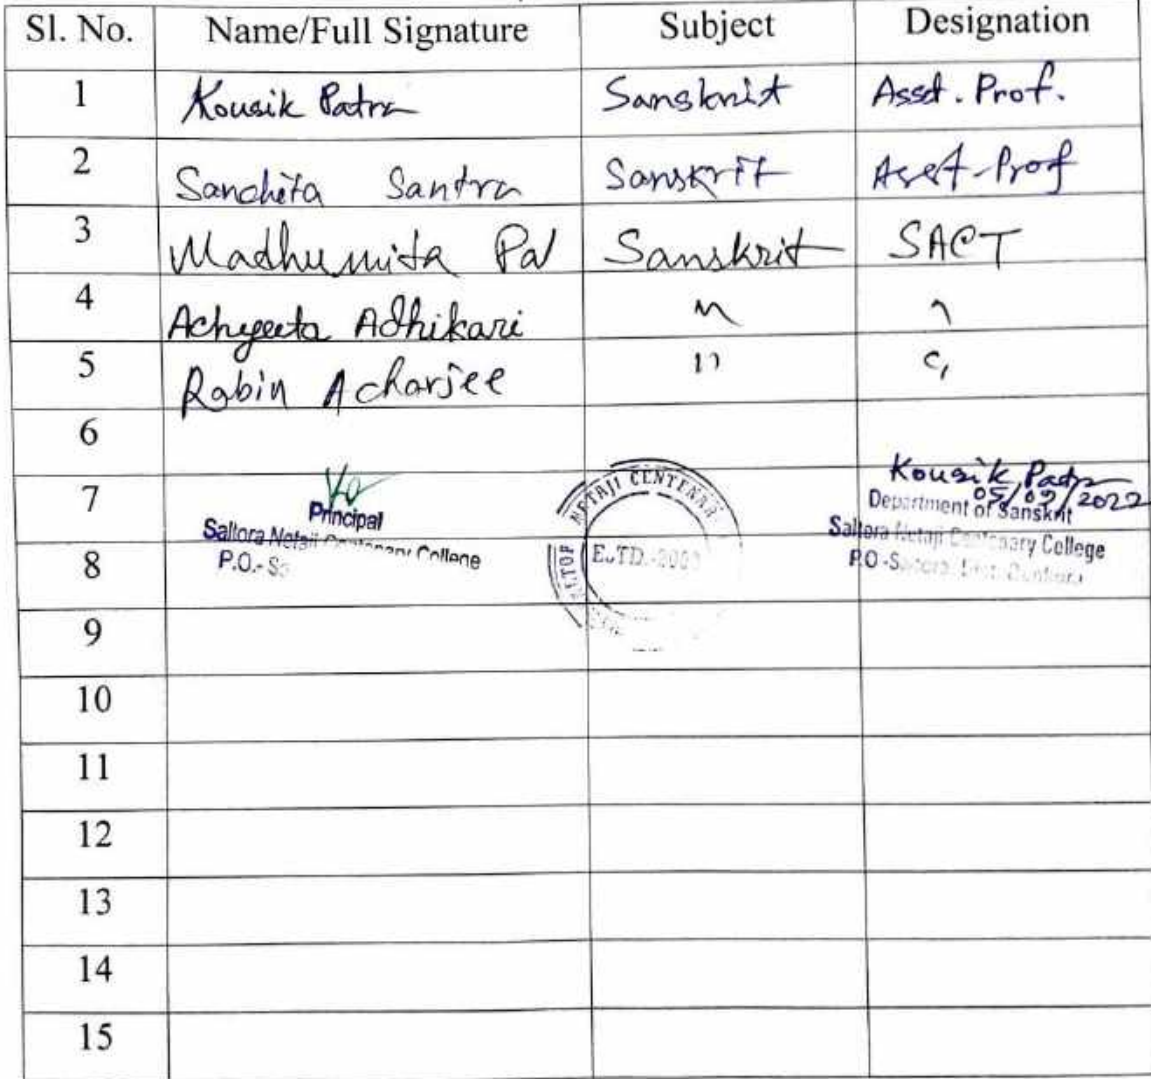 Sl. No. Name/Full Signature Subject Designation
1 Kousik Patra Sanskrit Asst. Prof.
2 Sanchita Santra Sanskrit Asst-Prof
3 Madhumita Pal Sanskrit SACT
4 Achyeeta Adhikari " "
5 Rabin Acharjee " "
6
7
Principal
Saltora Netaji Centenary College
P.O.-
NETAJI CENTENAR
ESTD.-2000
Kousik Patra
05/09/2022
Department of Sanskrit
Saltora Netaji Centenary College
P.O-
8
9
10
11
12
13
14
15